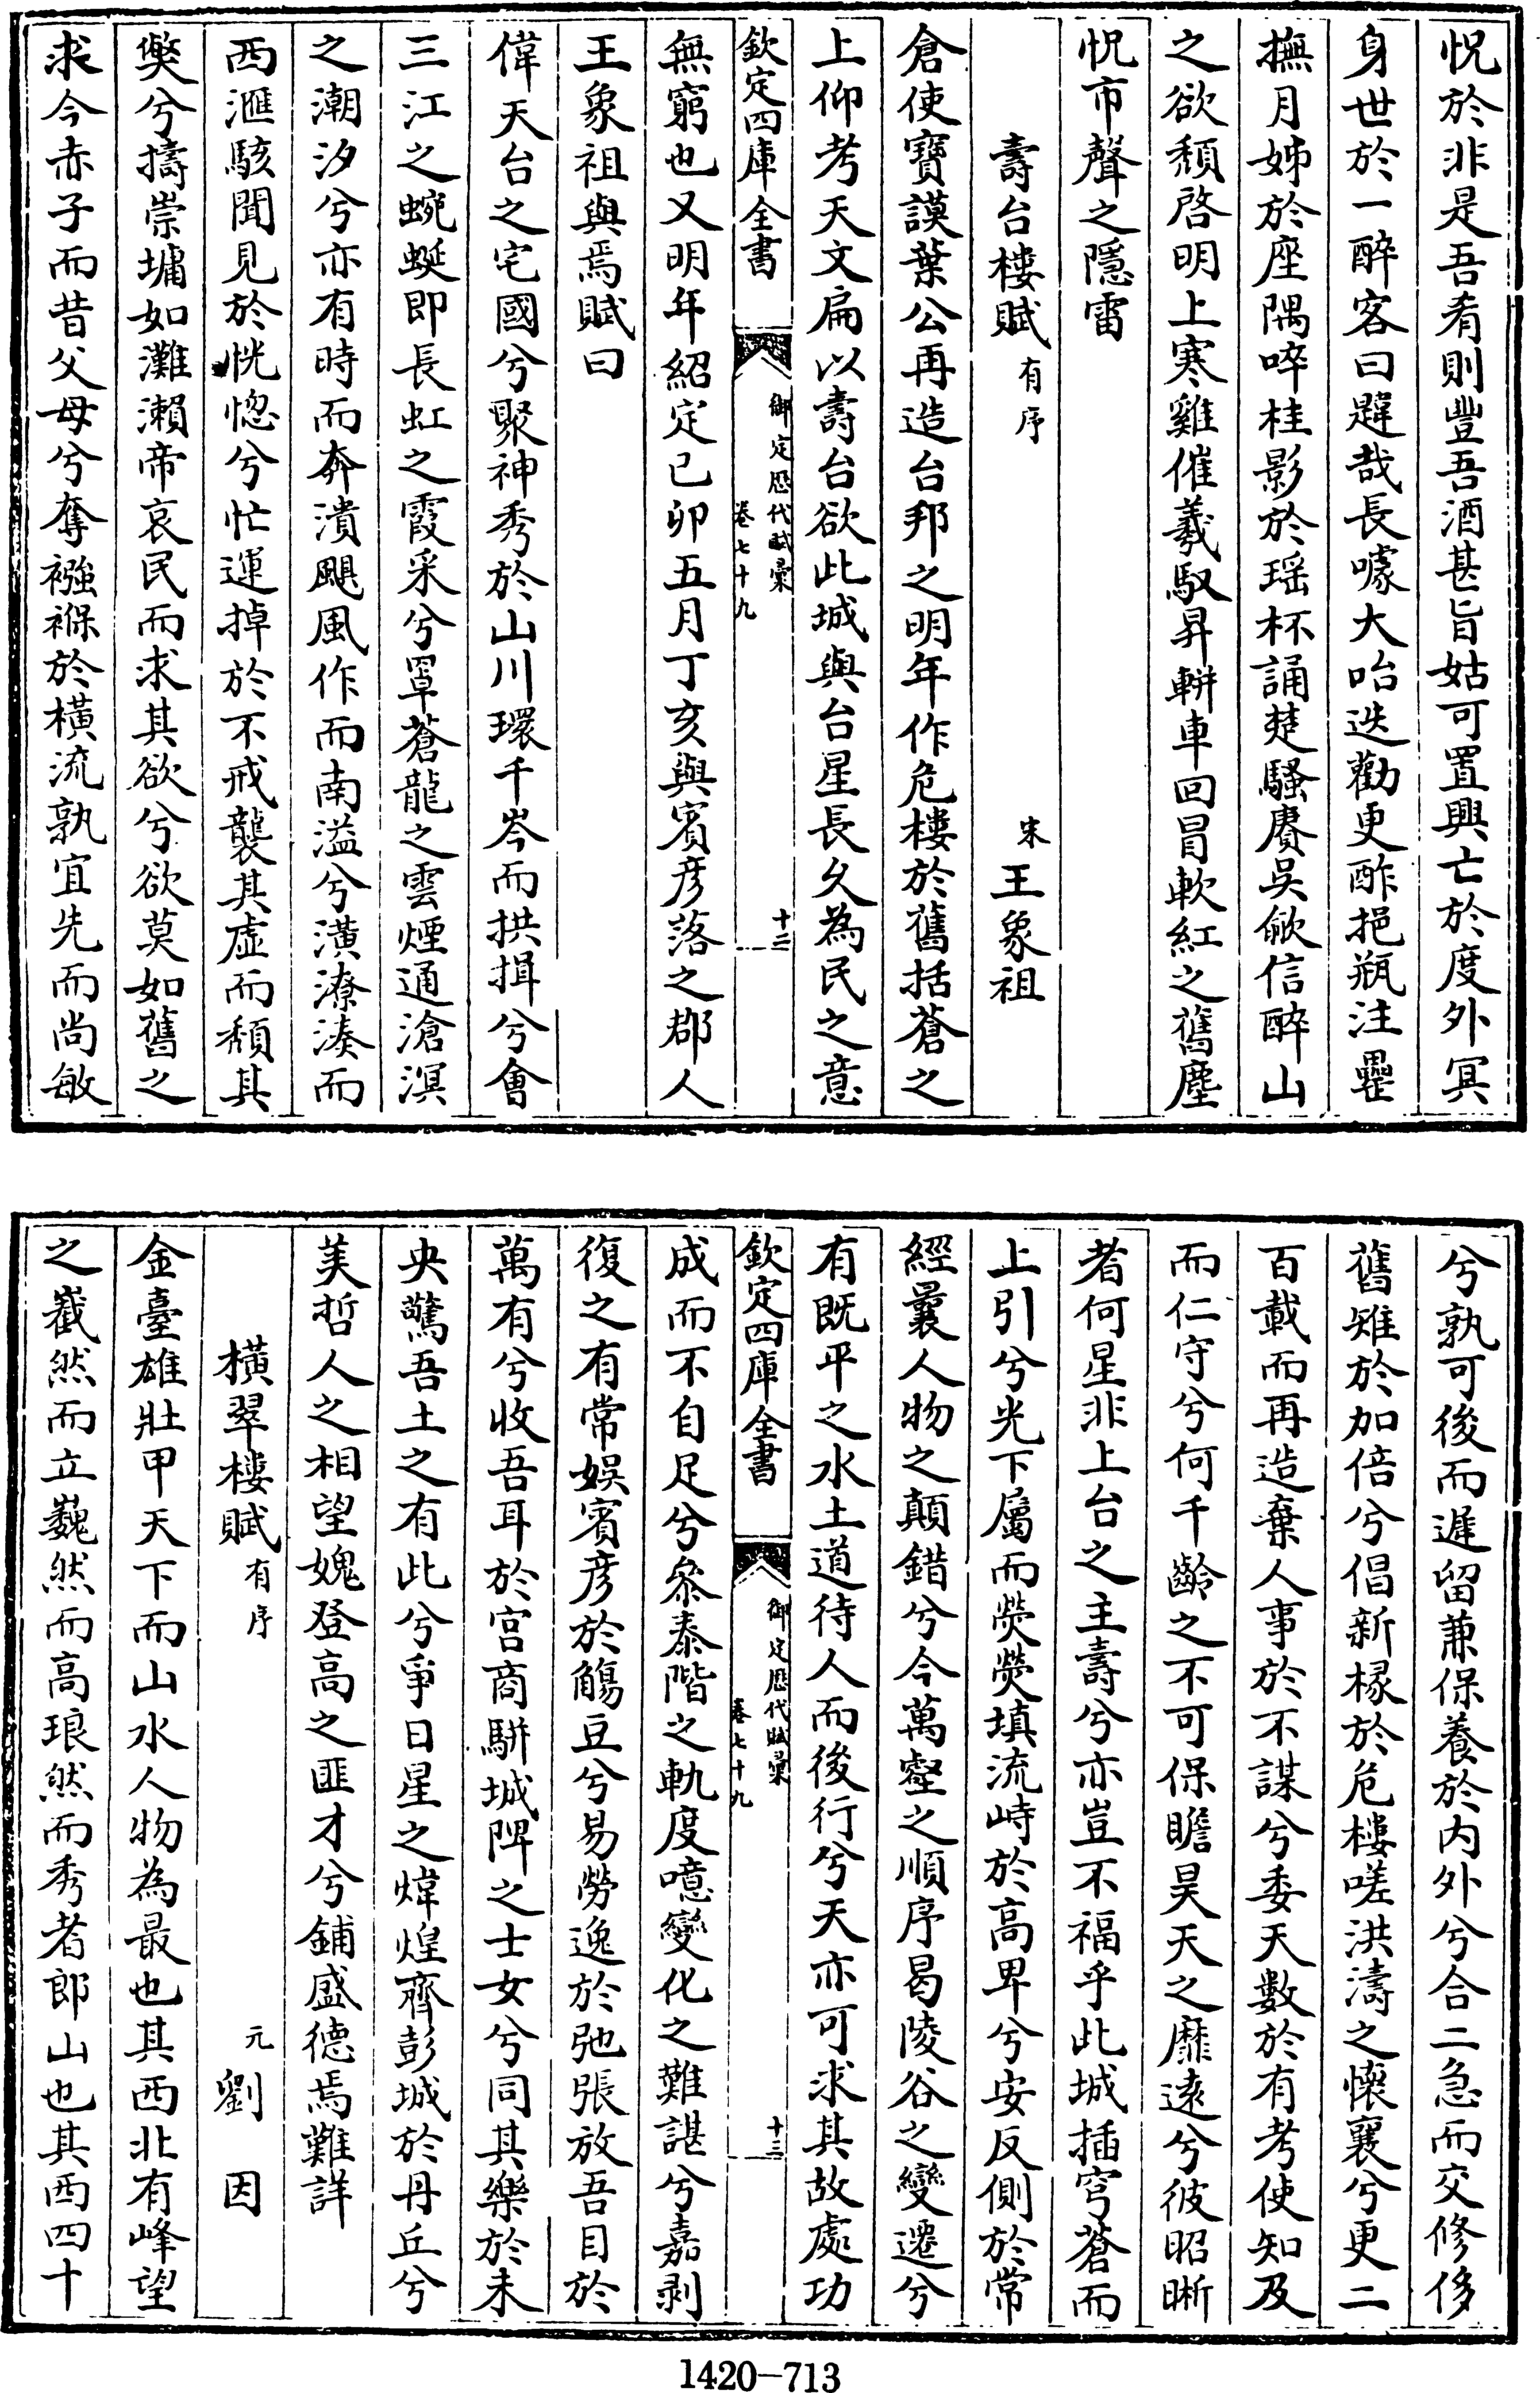 怳於非是吾肴則豐吾酒甚旨姑可置興亡於度外冥
身世於一醉客曰韙哉長噱大咍迭勸更酢挹瓶注罍
撫月姊於座隅啐桂影於瑶杯誦楚騷賡吳歈信醉山
之欲頽啓明上寒雞催羲馭昇輧車回冒軟紅之舊塵
怳市聲之隱雷
壽台樓賦有序 宋王象祖
倉使寶謨葉公再造台邦之明年作危樓於舊括蒼之
上仰考天文扁以壽台欲此城與台星長久為民之意
欽定四庫全書 御定歴代賦彙 卷七十九 十二
無窮也又明年紹定己卯五月丁亥與賓彦落之郡人
王象祖與焉賦曰
偉天台之宅國兮聚神秀於山川環千岑而拱揖兮會
三江之蜿蜒即長虹之霞采兮罩蒼龍之雲煙通滄溟
之潮汐兮亦有時而奔潰颶風作而南溢兮潢潦湊而
西滙駭聞見於恍惚兮忙運掉於不戒襲其虚而頽其
獘兮擣崇墉如灘瀨帝哀民而求其欲兮欲莫如舊之
求今赤子而昔父母兮奪襁褓於橫流孰宜先而尚敏
兮孰可後而遲留兼保養於内外兮合二急而交修侈
舊雉於加倍兮倡新椽於危樓嗟洪濤之懷襄兮更二
百載而再造棄人事於不謀兮委天數於有考使知及
而仁守兮何千齡之不可保瞻昊天之靡遠兮彼昭晣
者何星非上台之主壽兮亦豈不福乎此城插穹蒼而
上引兮光下屬而熒熒填流峙於高卑兮安反側於常
經曩人物之顛錯兮今萬壑之順序曷陵谷之變遷兮
有既平之水土道待人而後行兮天亦可求其故處功
欽定四庫全書 御定歴代賦彙 卷七十九 十三
成而不自足兮叅泰階之軌度噫變化之難諶兮嘉剥
復之有常娱賓彦於觴豆兮易勞逸於弛張放吾目於
萬有兮收吾耳於宫商駢城陴之士女兮同其樂於未
央驚吾土之有此兮爭日星之煒煌齊彭城於丹丘兮
美哲人之相望媿登高之匪才兮鋪盛德焉難詳
横翠樓賦有序 元劉因
金臺雄壯甲天下而山水人物為最也其西北有峰望
之巀然而立巍然而高琅然而秀者郎山也其西四十
1420-713